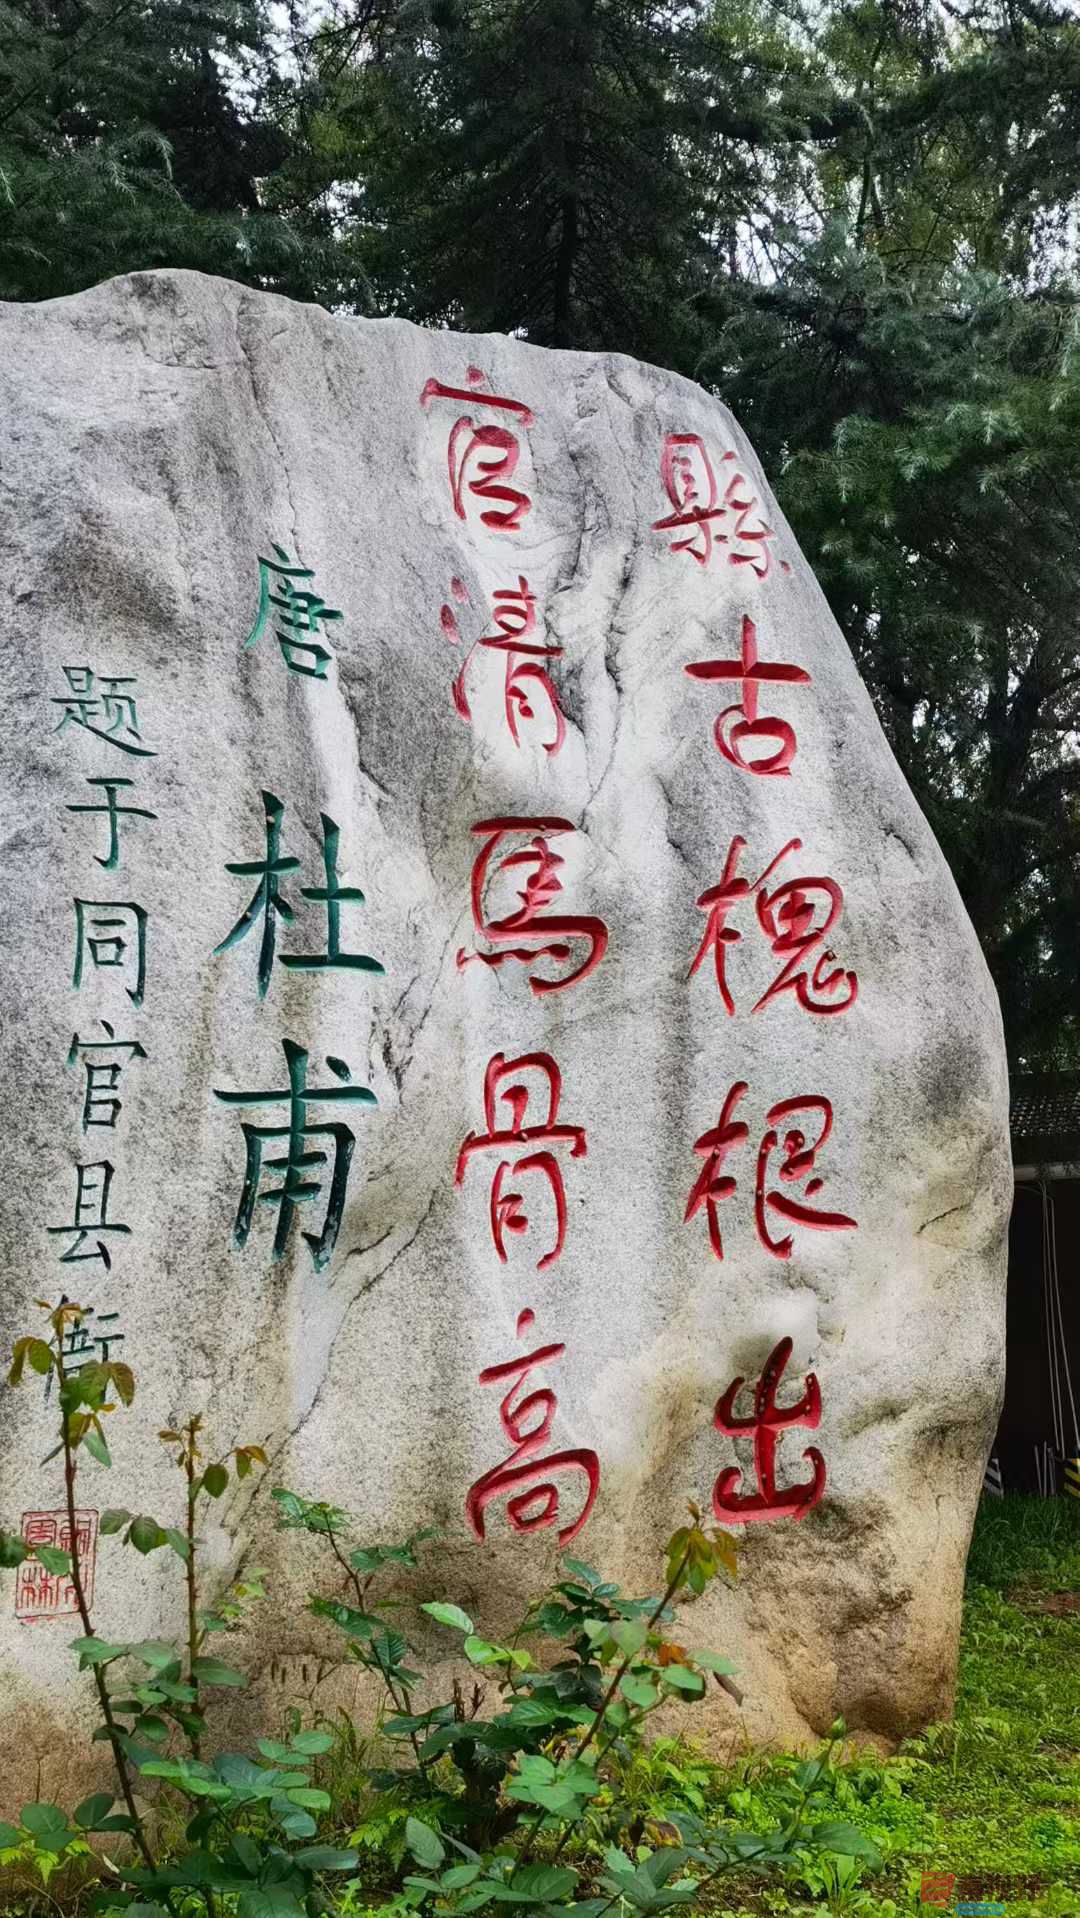 縣古槐根出
官清馬骨高
唐 杜甫
题于同官县衙